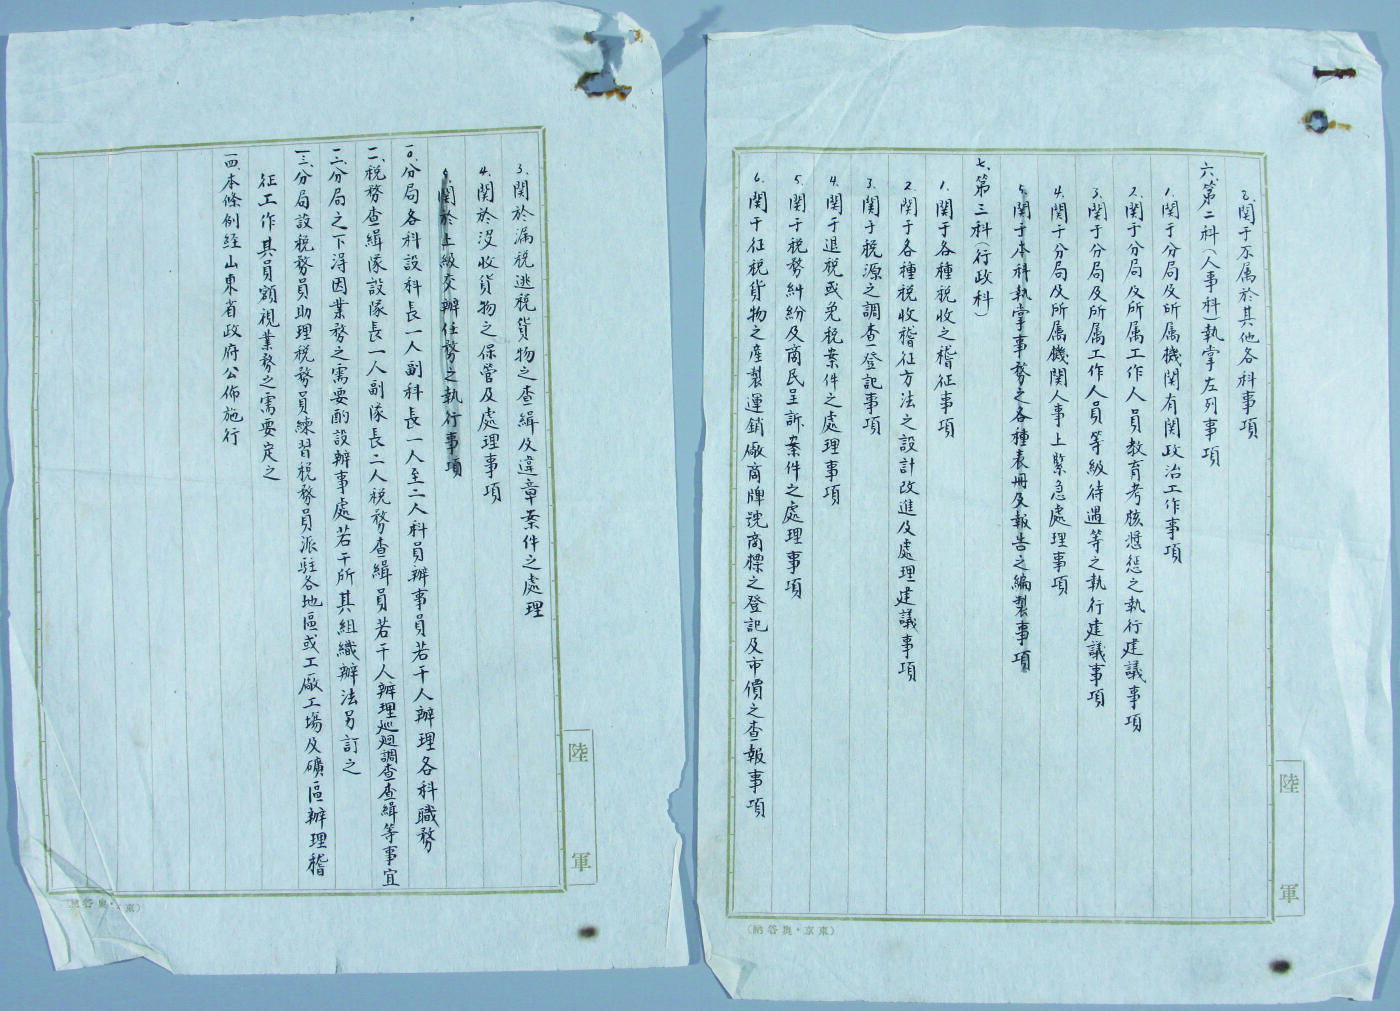 8.関于不属於其他各科事項
六、第二科(人事科)執掌左列事項
1.関于分局及所属機関有関政治工作事項
2.関于分局及所属工作人員教育考核奬惩之執行建議事項
3.関于分局及所属工作人員等級待遇等之執行建議事項
4.関于分局及所属機関人事上緊急處理事項
5.関于本科執掌事務之各種表冊及報告之編製事項
七、第三科(行政科)
1.関于各種税收之稽征事項
2.関于各種税收稽征方法之設計改進及處理建議事項
3.関于税源之調查登記事項
4.関于退税或免税案件之處理事項
5.関于税務糾紛及商民呈訴案件之處理事項
6.関于征税貨物之產製運銷廠商牌號商標之登記及市價之查報事項
陸軍
(東京・奥谷納)
3.関於漏税逃税貨物之查緝及違章案件之處理
4.関於没收貨物之保管及處理事項
5.関於上級交辦任務之執行事項
一〇.分局各科設科長一人副科長一人至二人科員辦事員若干人辦理各科職務
一一.税務查緝隊設隊長一人副隊長二人税務查緝員若干人辦理巡廻調查查緝等事宜
一二.分局之下得因業務之需要酌設辦事處若干所其組織辦法另訂之
一三.分局設税務員助理税務員練習税務員派駐各地區或工廠工塲及礦區辦理稽
征工作其員額視業務之需要定之
一四.本條例経山東省政府公佈施行
陸軍